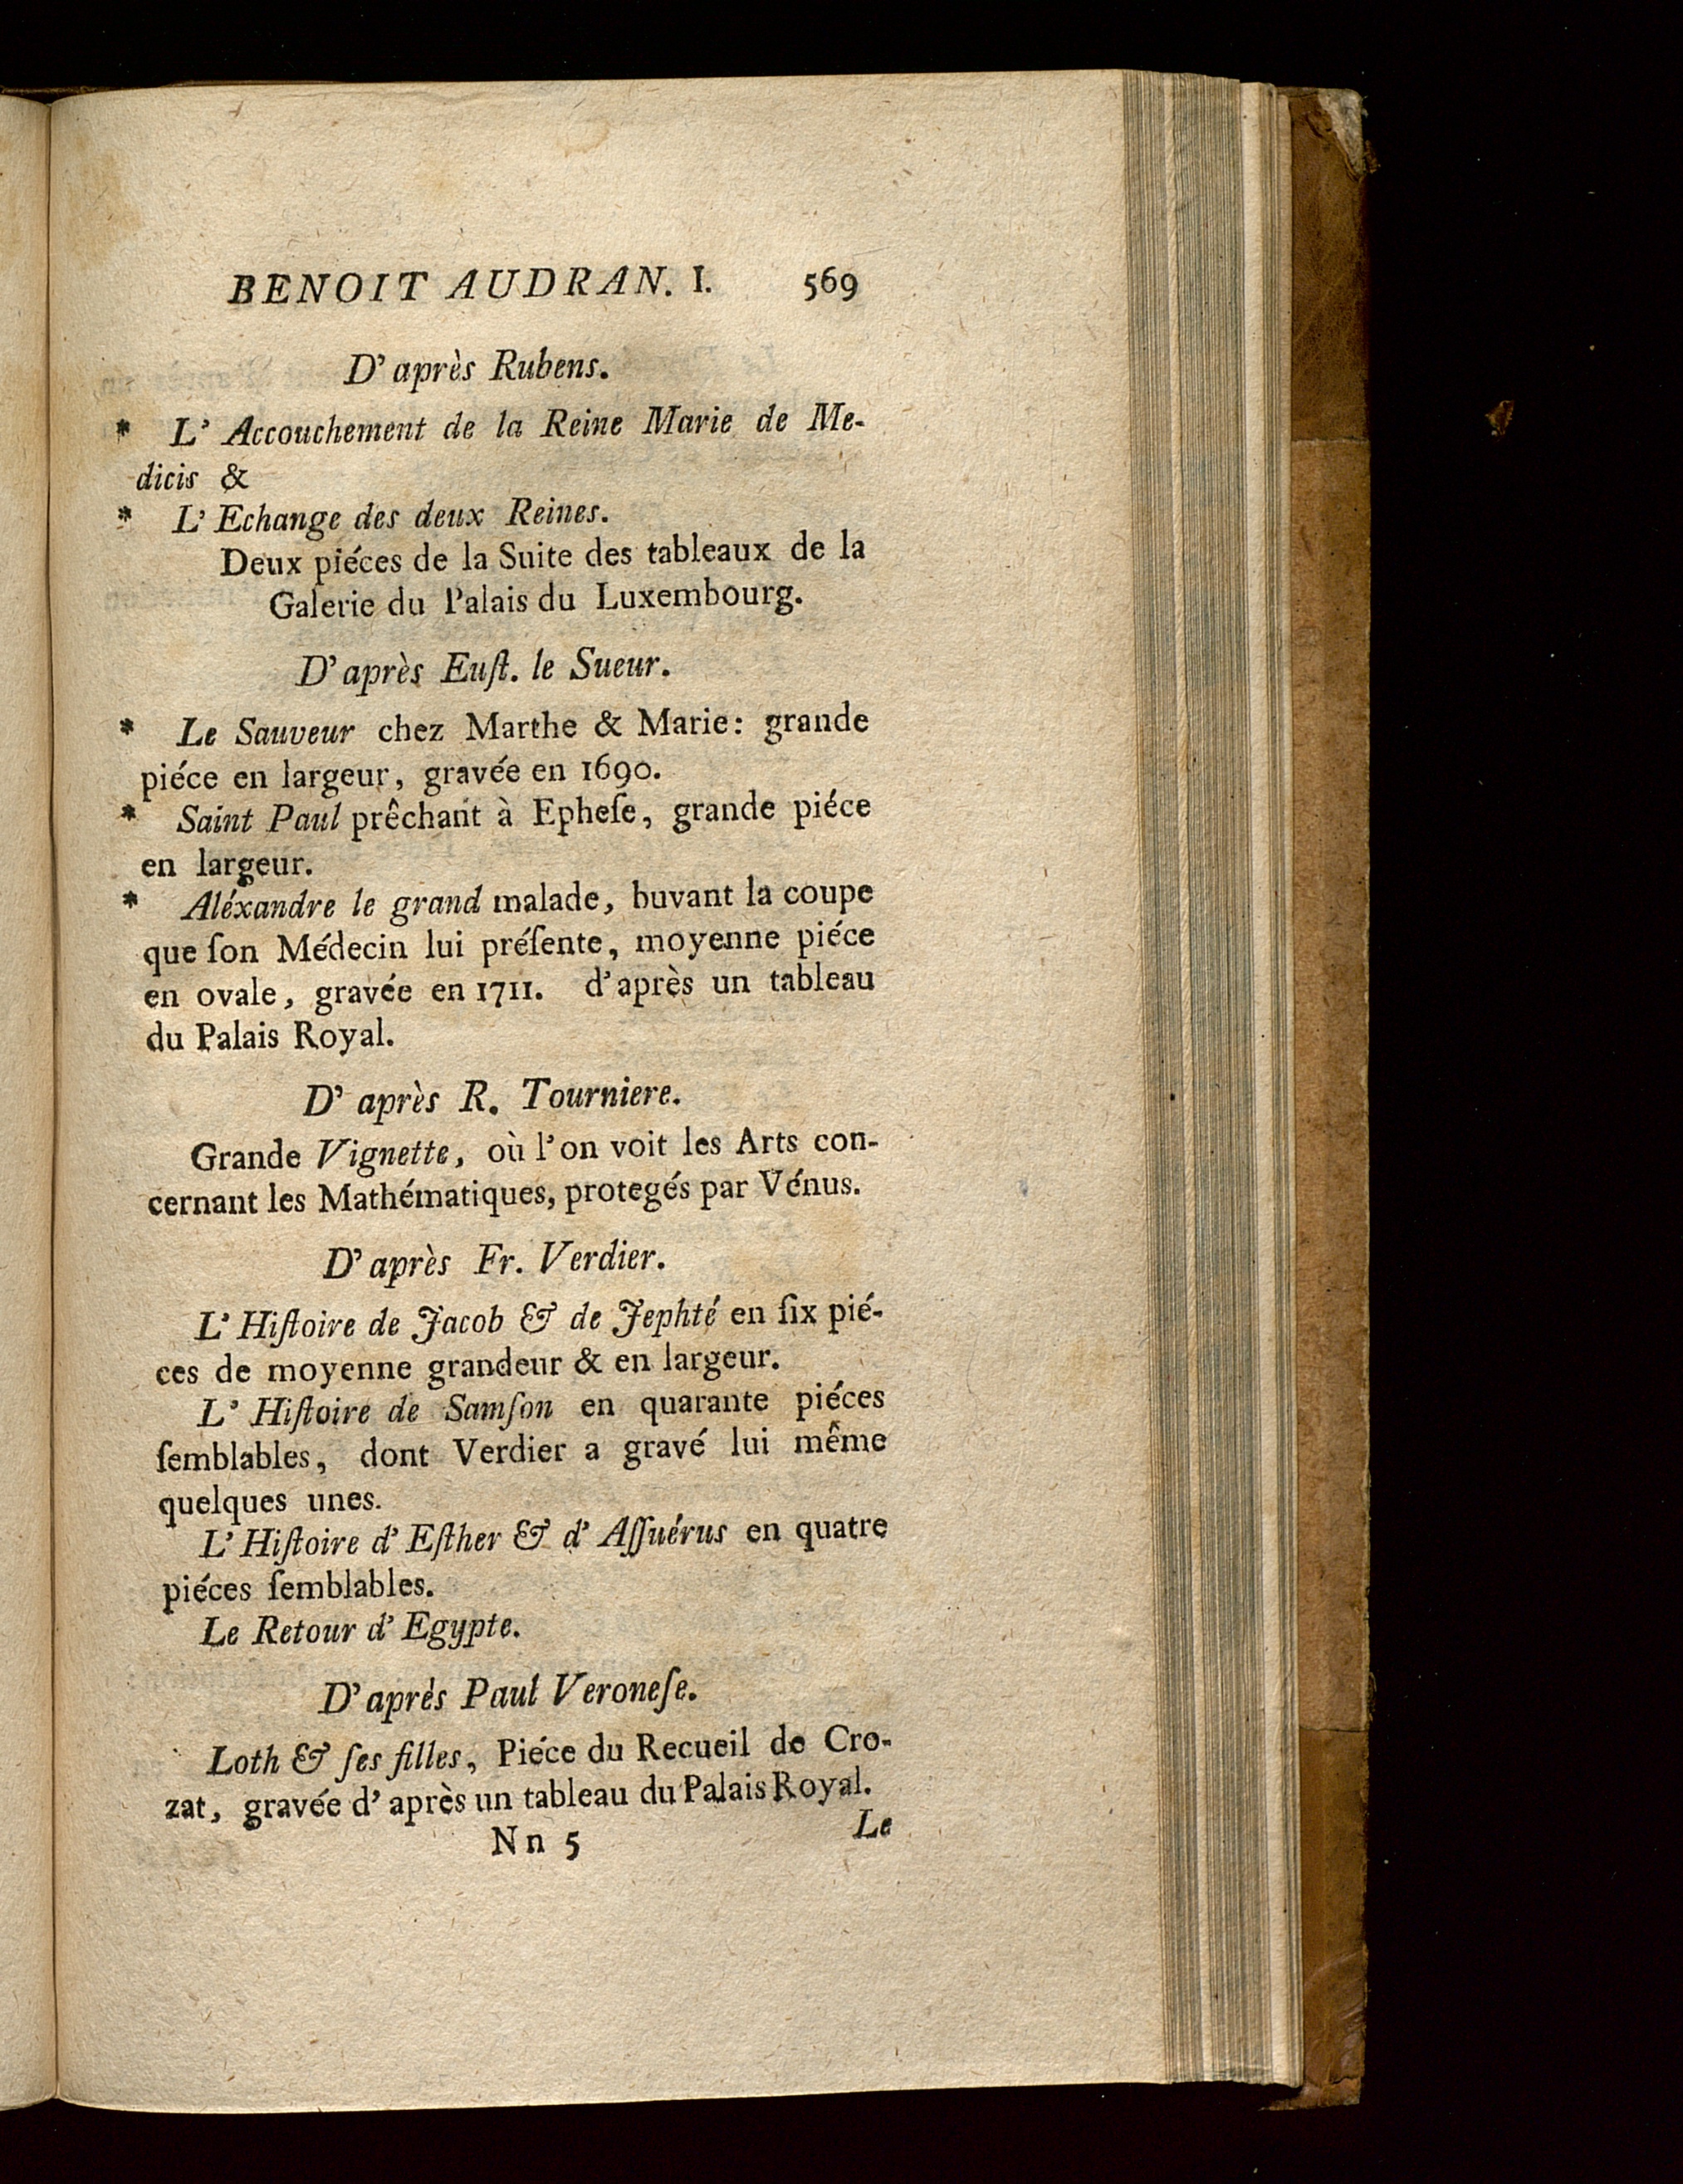 BENOIT AUDRAN. I. 569
D' après Rubens.
* L' Accouchement de la Reine Marie de Me-
dicis &
* L' Echange des deux Reines.
Deux piéces de la Suite des tableaux de la
Galerie du Palais du Luxembourg.
D' après Euſt. le Sueur.
* Le Sauveur chez Marthe & Marie: grande
piéce en largeur, gravée en 1690.
* Saint Paul prêchant à Epheſe, grande piéce
en largeur.
* Aléxandre le grand malade, buvant la coupe
que ſon Médecin lui préſente, moyenne piéce
en ovale, gravée en 1711. d'après un tableau
du Palais Royal.
D' après R. Tourniere.
Grande Vignette, où l'on voit les Arts con-
cernant les Mathématiques, protegés par Vénus.
D' après Fr. Verdier.
L' Hiſtoire de Jacob & de Jephté en ſix pié-
ces de moyenne grandeur & en largeur.
L' Hiſtoire de Samſon en quarante piéces
ſemblables, dont Verdier a gravé lui même
quelques unes.
L' Hiſtoire d' Eſther & d' Aſſuérus en quatre
piéces ſemblables.
Le Retour d' Egypte.
D' après Paul Veroneſe.
Loth & ſes filles, Piéce du Recueil de Cro-
zat, gravée d' après un tableau du Palais Royal.
Nn 5 Le